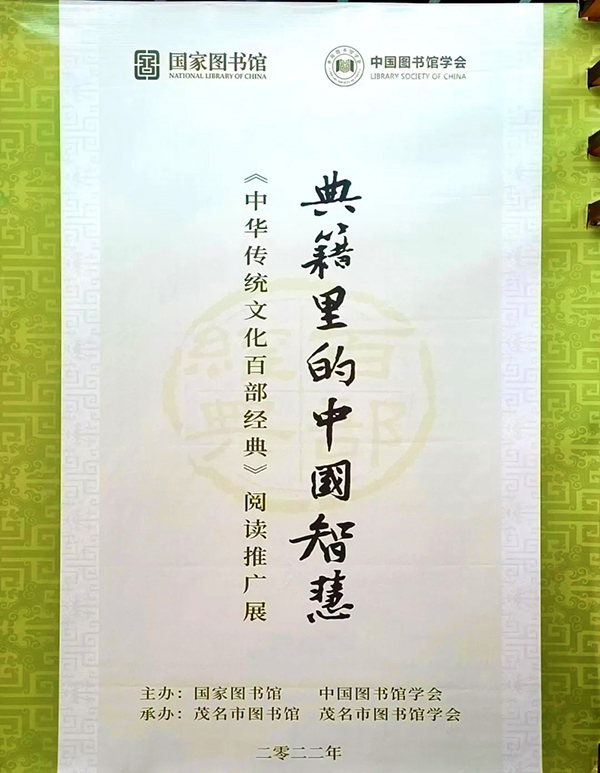 国家图书馆
NATIONAL LIBRARY OF CHINA
中国图书馆学会
LIBRARY SOCIETY OF CHINA
典籍里的中國智慧
《中华传统文化百部经典》阅读推广展
百部經典
主办：国家图书馆 中国图书馆学会
承办：茂名市图书馆 茂名市图书馆学会
二零二二年